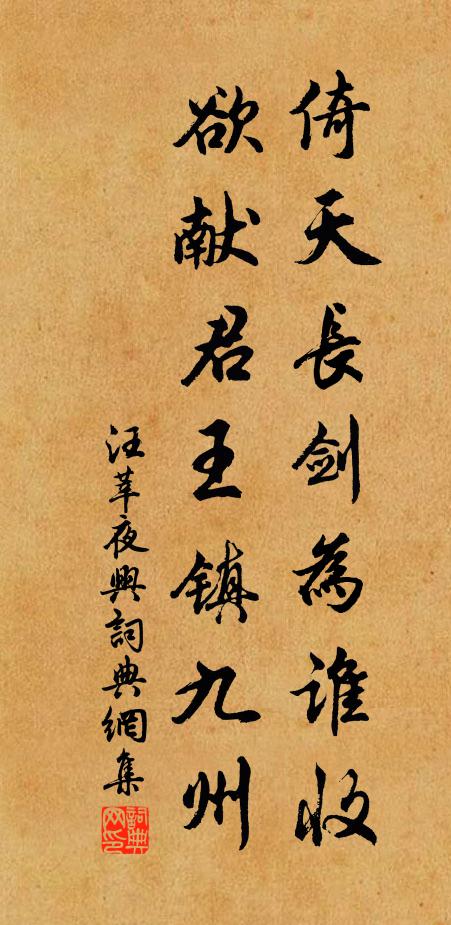 倚天長劍為誰收
欲献君王鎮九州
汪莘夜興詞典網集
詞典網印